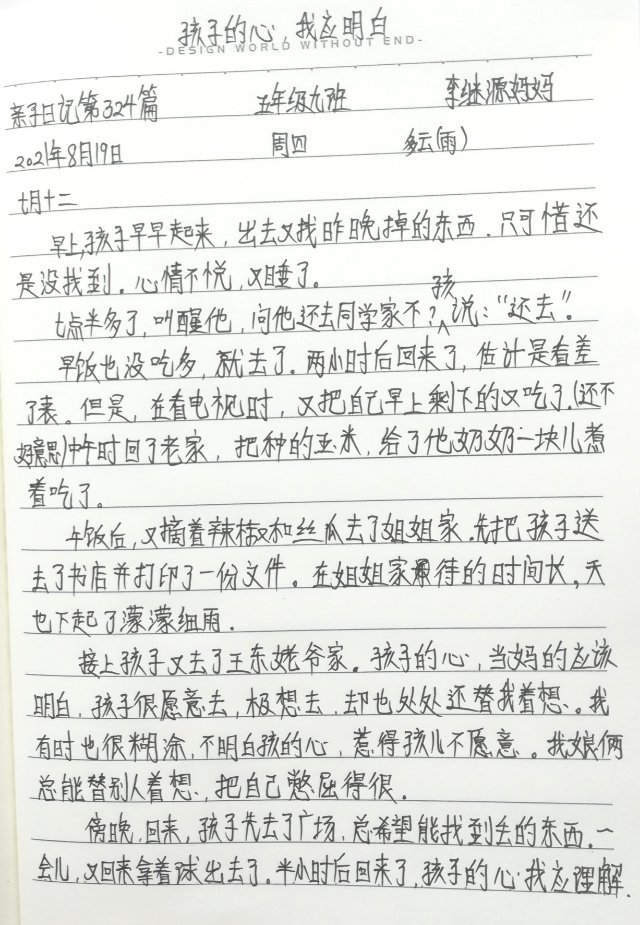 孩子的心，我应明白
-DESIGN WORLD WITHOUT END-
亲子日记第324篇 五年级九班 李继源妈妈
2021年8月19日 周四 多云(雨)
七月十二
早上,孩子早早起来，出去又找昨晚掉的东西.只可惜还
是没找到。心情不悦，又睡了。
七点半多了,叫醒他，问他还去同学家不?孩说："还去"。
早饭也没吃多，就去了.两小时后回来了，估计是看差
了表。但是，在看电视时，又把自己早上剩下的又吃了.(还不
好意思)中午时回了老家，把种的玉米，给了他奶奶一块儿煮
着吃了。
午饭后,又摘着辣椒和丝瓜去了姐姐家.先把孩子送
去了书店并打印了一份文件。在姐姐家待的时间长,天
也下起了濛濛细雨.
接上孩子又去了王东姥爷家。孩子的心,当妈的应该
明白,孩子很愿意去,极想去,却也处处还替我着想。我
有时也很糊涂,不明白孩的心,惹得孩儿不愿意。我娘俩
总能替别人着想,把自己憋屈得很.
傍晚,回来,孩子先去了广场,总希望能找到丢的东西.一
会儿,又回来拿着球出去了.半小时后回来了,孩子的心我应理解.